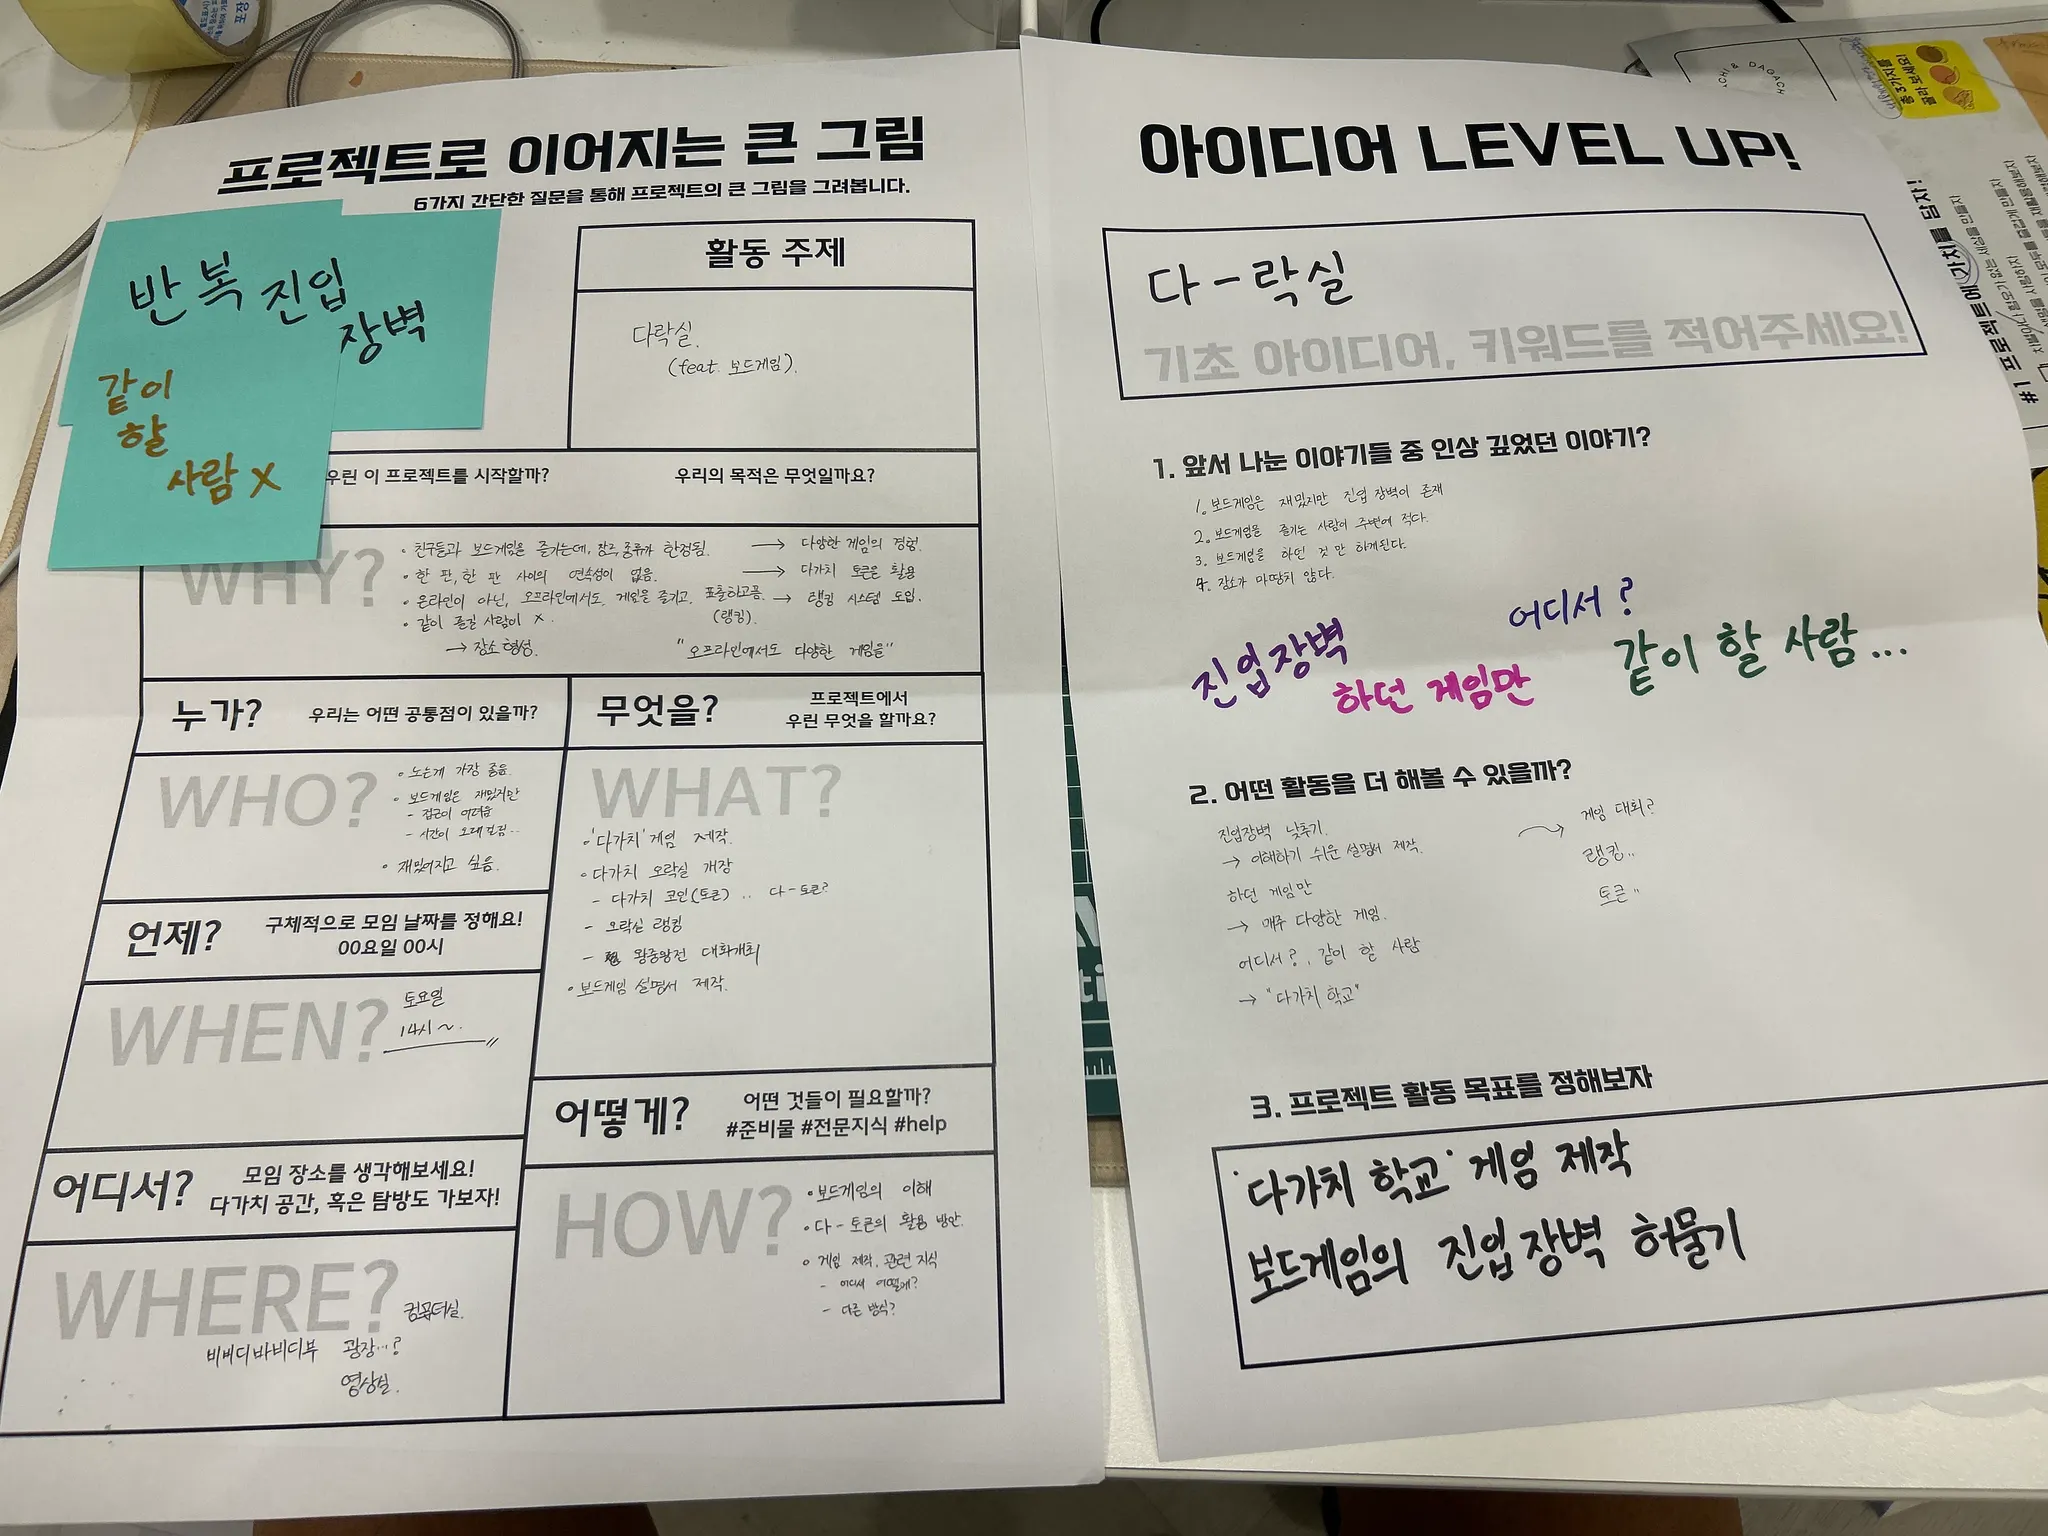 프로젝트로 이어지는 큰 그림
6가지 간단한 질문을 통해 프로젝트의 큰 그림을 그려봅니다.
반복
진입
장벽
같이
할
사람 X
활동 주제
다락실.
(feat. 보드게임).
우린 이 프로젝트를 시작할까?
우리의 목적은 무엇일까요?
WHY?
• 친구들과 보드게임을 즐기는데, 장소, 종류가 한정됨. → 다양한 게임의 경험.
• 한 판, 한 판 사이의 연속성이 없음. → 다가치 토큰을 활용
• 온라인이 아닌, 오프라인에서도, 게임을 즐기고, 표출하고픔. → 랭킹 시스템 도입.
(랭킹).
• 같이 즐길 사람이 X.
→ 장소 형성.
"오프라인에서도 다양한 게임을"
누가?
우리는 어떤 공통점이 있을까?
WHO?
• 노는게 가장 좋음.
• 보드게임은 재밌지만
- 접근이 어려움
- 시간이 오래 걸림..
• 재밌어지고 싶음.
무엇을?
프로젝트에서
우린 무엇을 할까요?
WHAT?
• '다가치' 게임 제작.
• 다가치 오락실 개장
- 다가치 코인(토큰) .. 다-토큰?
- 오락실 랭킹
- 왕중왕전 대회개최
• 보드게임 설명서 제작.
언제?
구체적으로 모임 날짜를 정해요!
00요일 00시
WHEN?
토요일
14시 ~.
어디서?
모임 장소를 생각해보세요!
다가치 공간, 혹은 탐방도 가보자!
WHERE?
컴퓨터실.
비비디바비디부 광장...?
영상실.
어떻게?
어떤 것들이 필요할까?
#준비물 #전문지식 #help
HOW?
• 보드게임의 이해
• 다-토큰의 활용 방안.
• 게임 제작, 관련 지식
- 어디서 어떻게?
- 다른 방식?
아이디어 LEVEL UP!
다-락실
기초 아이디어, 키워드를 적어주세요!
1. 앞서 나눈 이야기들 중 인상 깊었던 이야기?
1. 보드게임은 재밌지만 진입 장벽이 존재
2. 보드게임을 즐기는 사람이 주변에 적다.
3. 보드게임을 하던 것만 하게된다.
4. 장소가 마땅치 않다.
진입장벽
하던 게임만
어디서?
같이 할 사람...
2. 어떤 활동을 더 해볼 수 있을까?
진입장벽 낮추기.
→ 이해하기 쉬운 설명서 제작.
하던 게임만
→ 매주 다양한 게임.
어디서?, 같이 할 사람
→ "다가치 학교"
→ 게임 대회?
랭킹..
토큰..
3. 프로젝트 활동 목표를 정해보자
'다가치 학교' 게임 제작
보드게임의 진입장벽 허물기
총 3가지를
골라 보세요!
#1 프로젝트에 가치를 담자!